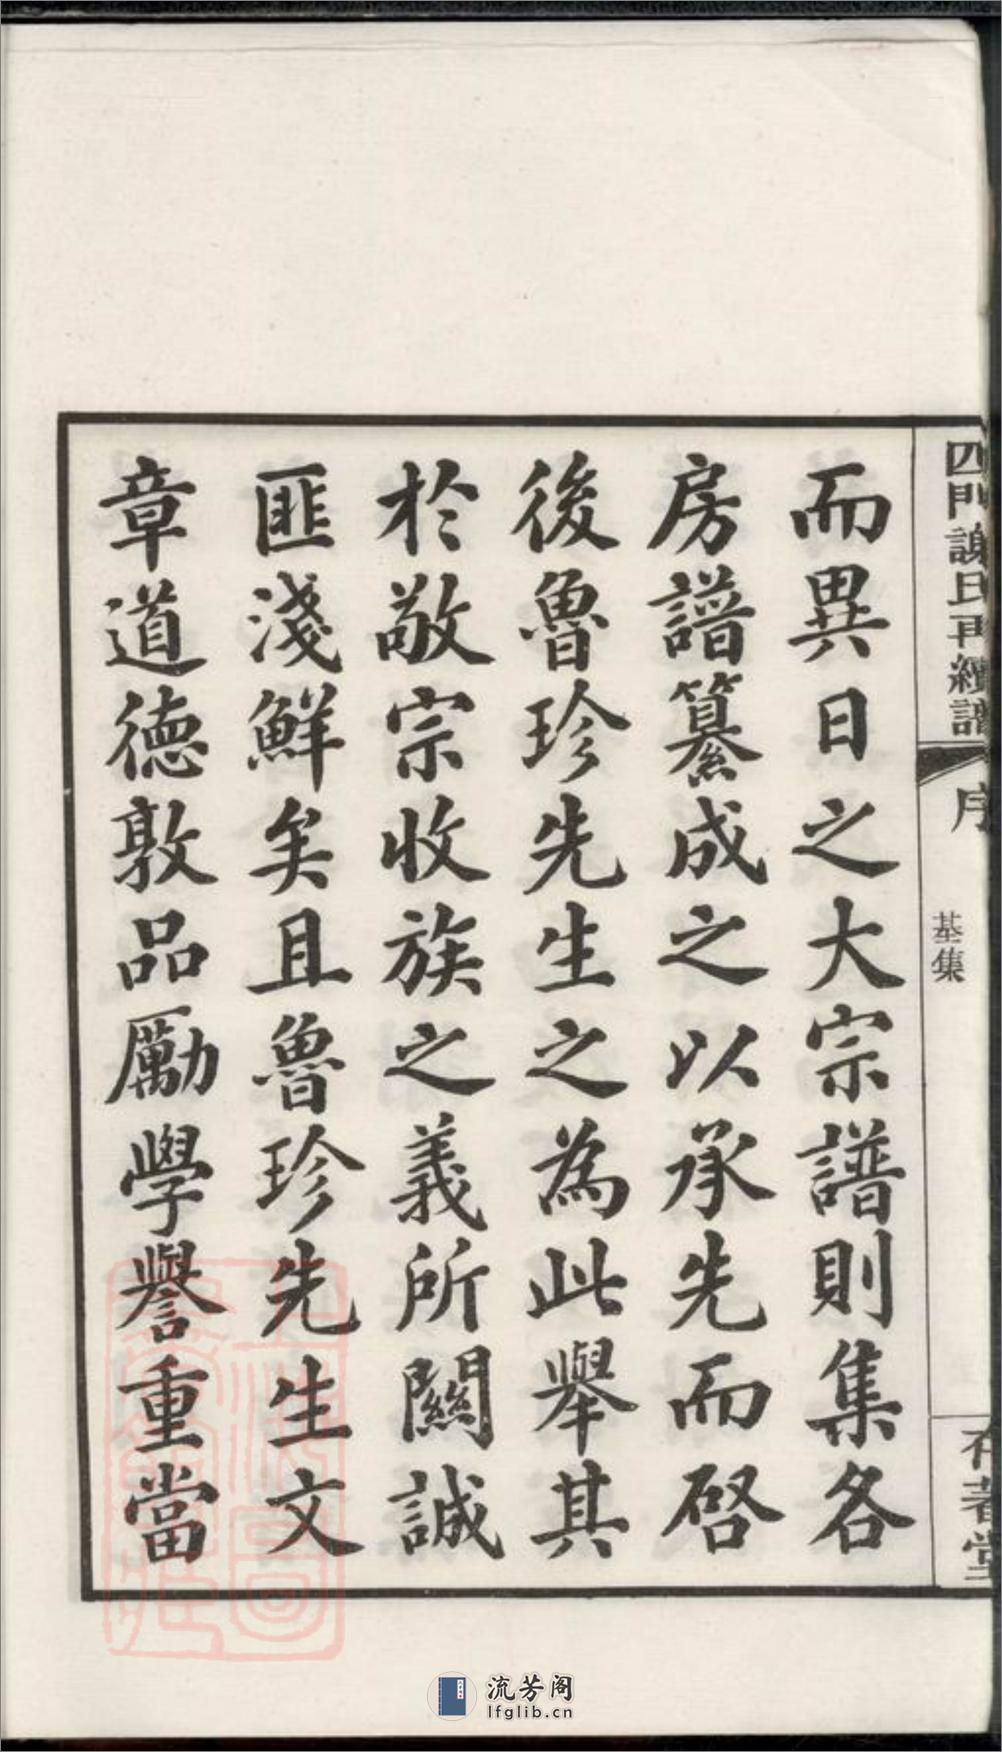 四門謝氏再續譜
序
基集
存著堂
而異日之大宗譜則集各
房譜纂成之以承先而啓
後魯珍先生之為此舉其
於敬宗收族之義所關誠
匪淺鮮矣且魯珍先生文
章道德敦品勵學譽重當
流芳阁
lfglib.cn